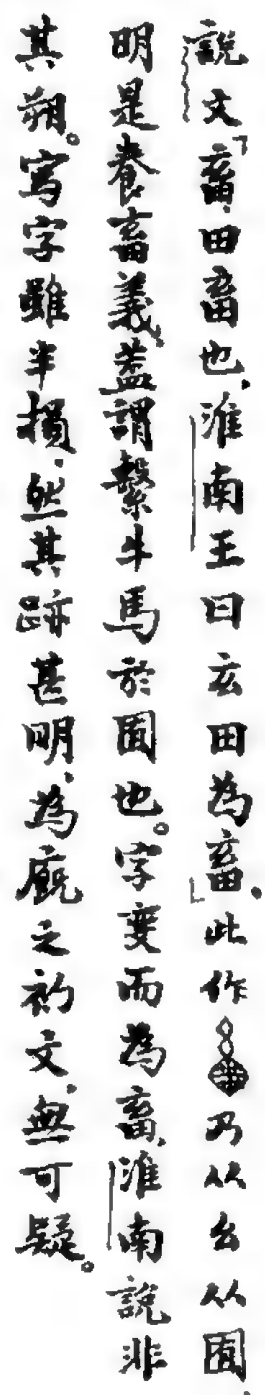 說文「畜，田畜也，淮南王曰玄田為畜」，此作乃从幺从囿，
明是養畜義，蓋謂繫牛馬於囿也。字變而為畜，淮南說非
其朔。寫字雖半損，然其跡甚明，為廄之初文，無可疑。